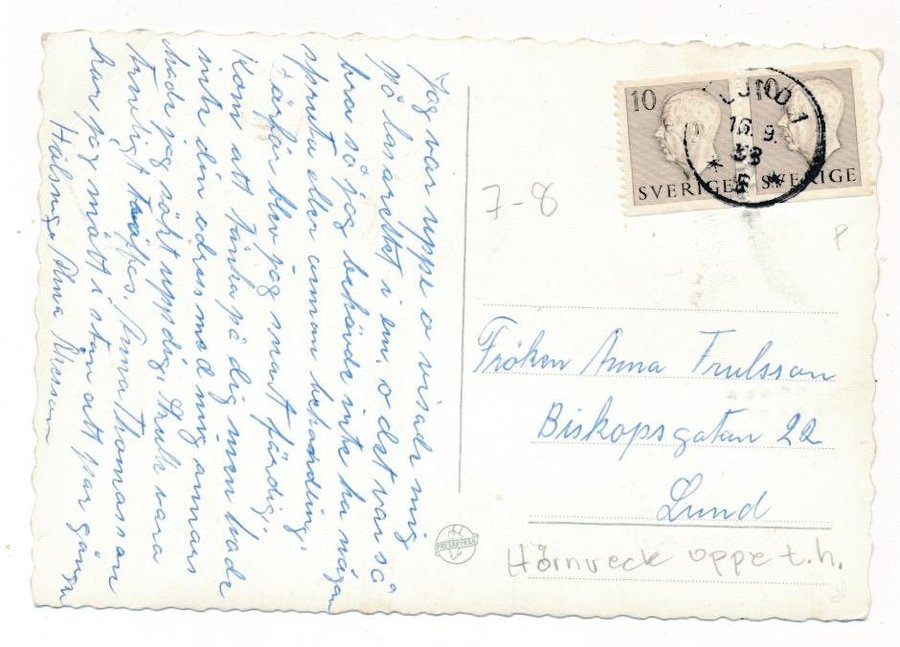 Jag var uppe o visade mig
på lasarettet i em. o det var så
bra så jag behövde inte ha någon
spruta eller annan behandling,
därför blev jag snart färdig,
kom att tänka på dig men hade
inte din adress med mig annars
hade jag sökt upp dig, skulle vara
trevligt träffas. Anna Thomasson
har jag mött i stan ett par gånger
Hälsningar Alma
10 10
SVERIGE SVERIGE
LUND 1
16. 9.
58
7-8
P
Fröken Anna Trulsson
Biskopsgatan 22
Lund
Hörnveck uppe t.h.
PRESSBYRÅN